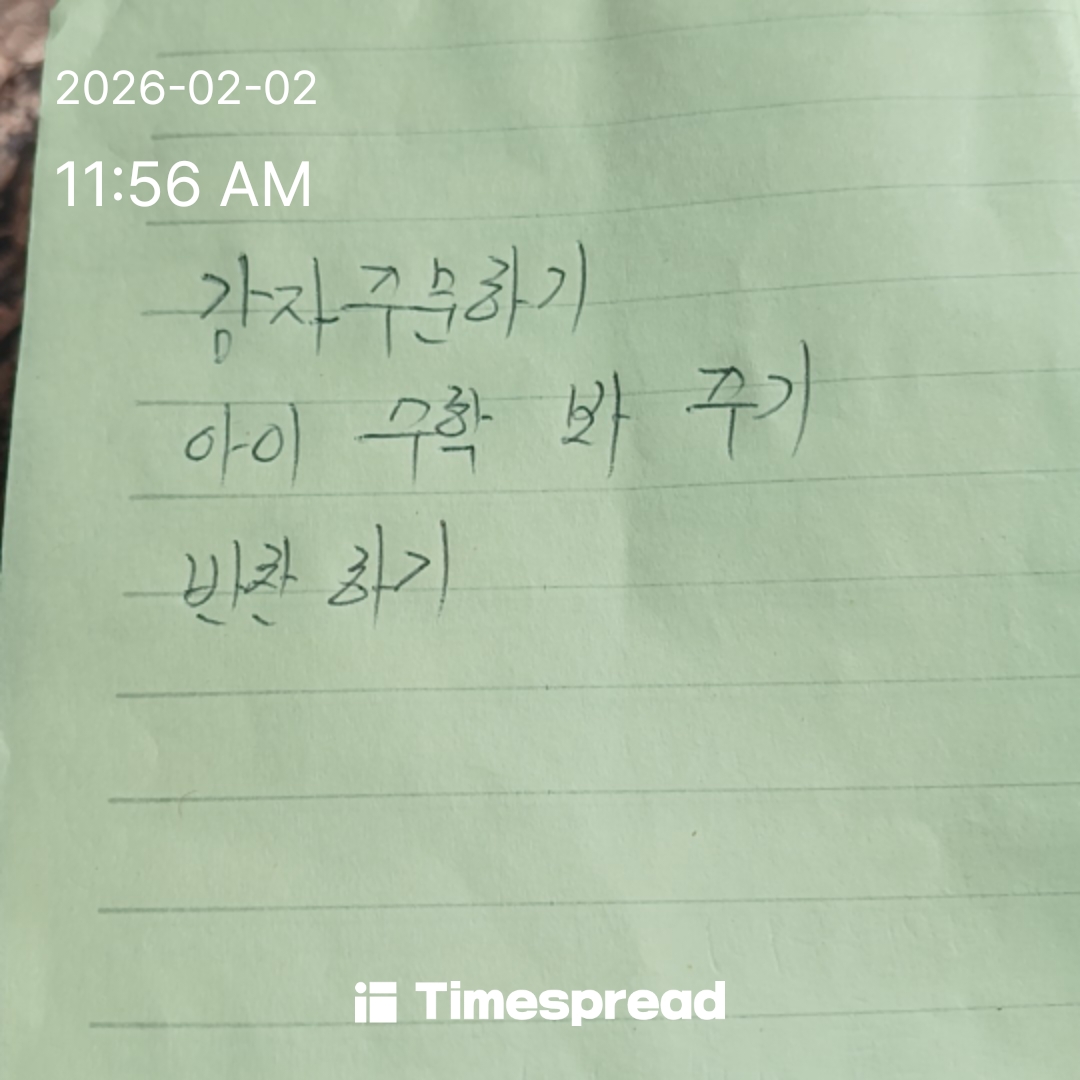 2026-02-02
11:56 AM
감자주문하기
아이 수학 봐 주기
반찬 하기
Timespread